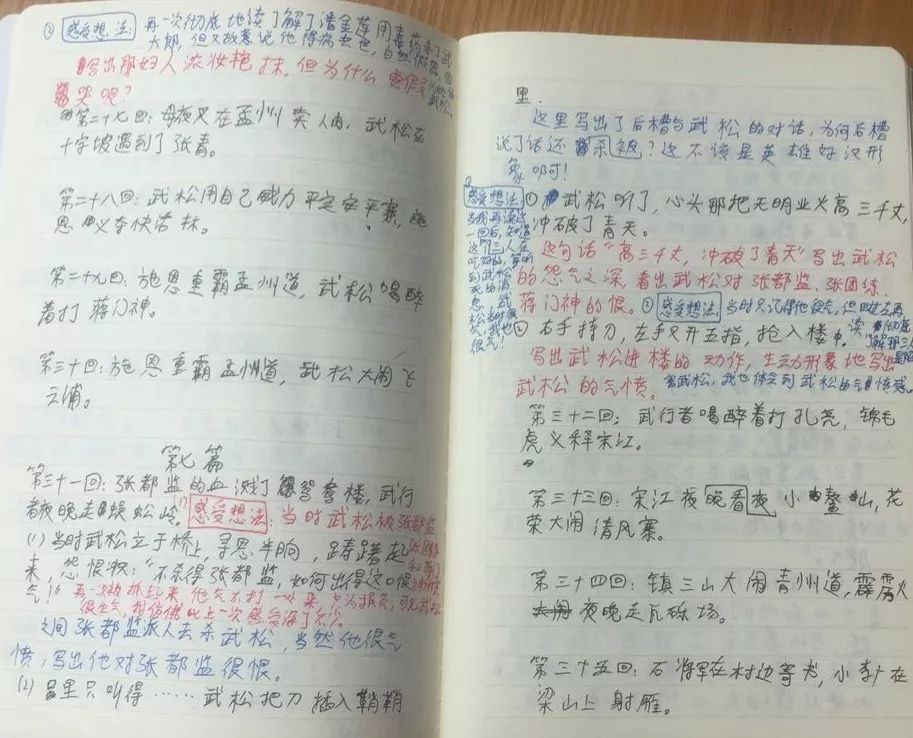 ③ 感受想法: 再一次彻底地读了解了潘金莲用毒药杀了武
大郎,但又故意说他得病去世,自然假哭
写出那妇人浓妆艳抹,但为什么要作
哭呢?
第二十七回:母夜叉在孟州卖人肉,武松在
十字坡遇到了张青。
第二十八回:武松用自己威力平定安平寨,施
恩义夺快活林。
第二十九回:施恩重霸孟州道,武松喝醉
着打蒋门神。
第三十回:施恩重霸孟州道,武松大闹飞
云浦。
第七篇
第三十一回:张都监的血溅了鸳鸯楼,武行
者夜晚走蜈蚣岭。
感受想法:当时武松被张都监
(1)当时武松立于桥上,寻思半晌,踌躇起
来,怨恨救:“不杀得张都监,如何出得这口恨
气!”
再一次
很生气,相信比上一次感受深了不少。
之间张都监派人去杀武松,当然他很气
愤,写出他对张都监很恨。
(2)只听得……武松把刀插入鞘鞘
里.
这里写出了后槽与武松的对话,为何后槽
说了话还杀他?这不该是英雄好汉形
象啊可!
① 武松听了,心头那把无明业火高三千丈,
冲破了青天。
感受想法
这句话“高三千丈,冲破了青天”写出武松
的怨气之深,看出武松对张都监、张团练、
蒋门神的恨。
② 感受想法 当时只记得他很气,但四
② 右手持刀,左手叉开五指,抢入楼中。
写出武松进楼的动作,生动形象地写出
武松的气愤。
害武松,我也体会到武松的气愤感。
第三十二回:武行者喝醉着打孔亮,锦毛
虎义释宋江。
第三十三回:宋江夜晚看夜小鳌山,花
荣大闹清风寨。
第三十四回:镇三山大闹青州道,霹雳火
夜晚走瓦砾场。
第三十五回:石将军在村边寄书,小李广在
梁山上射雁。